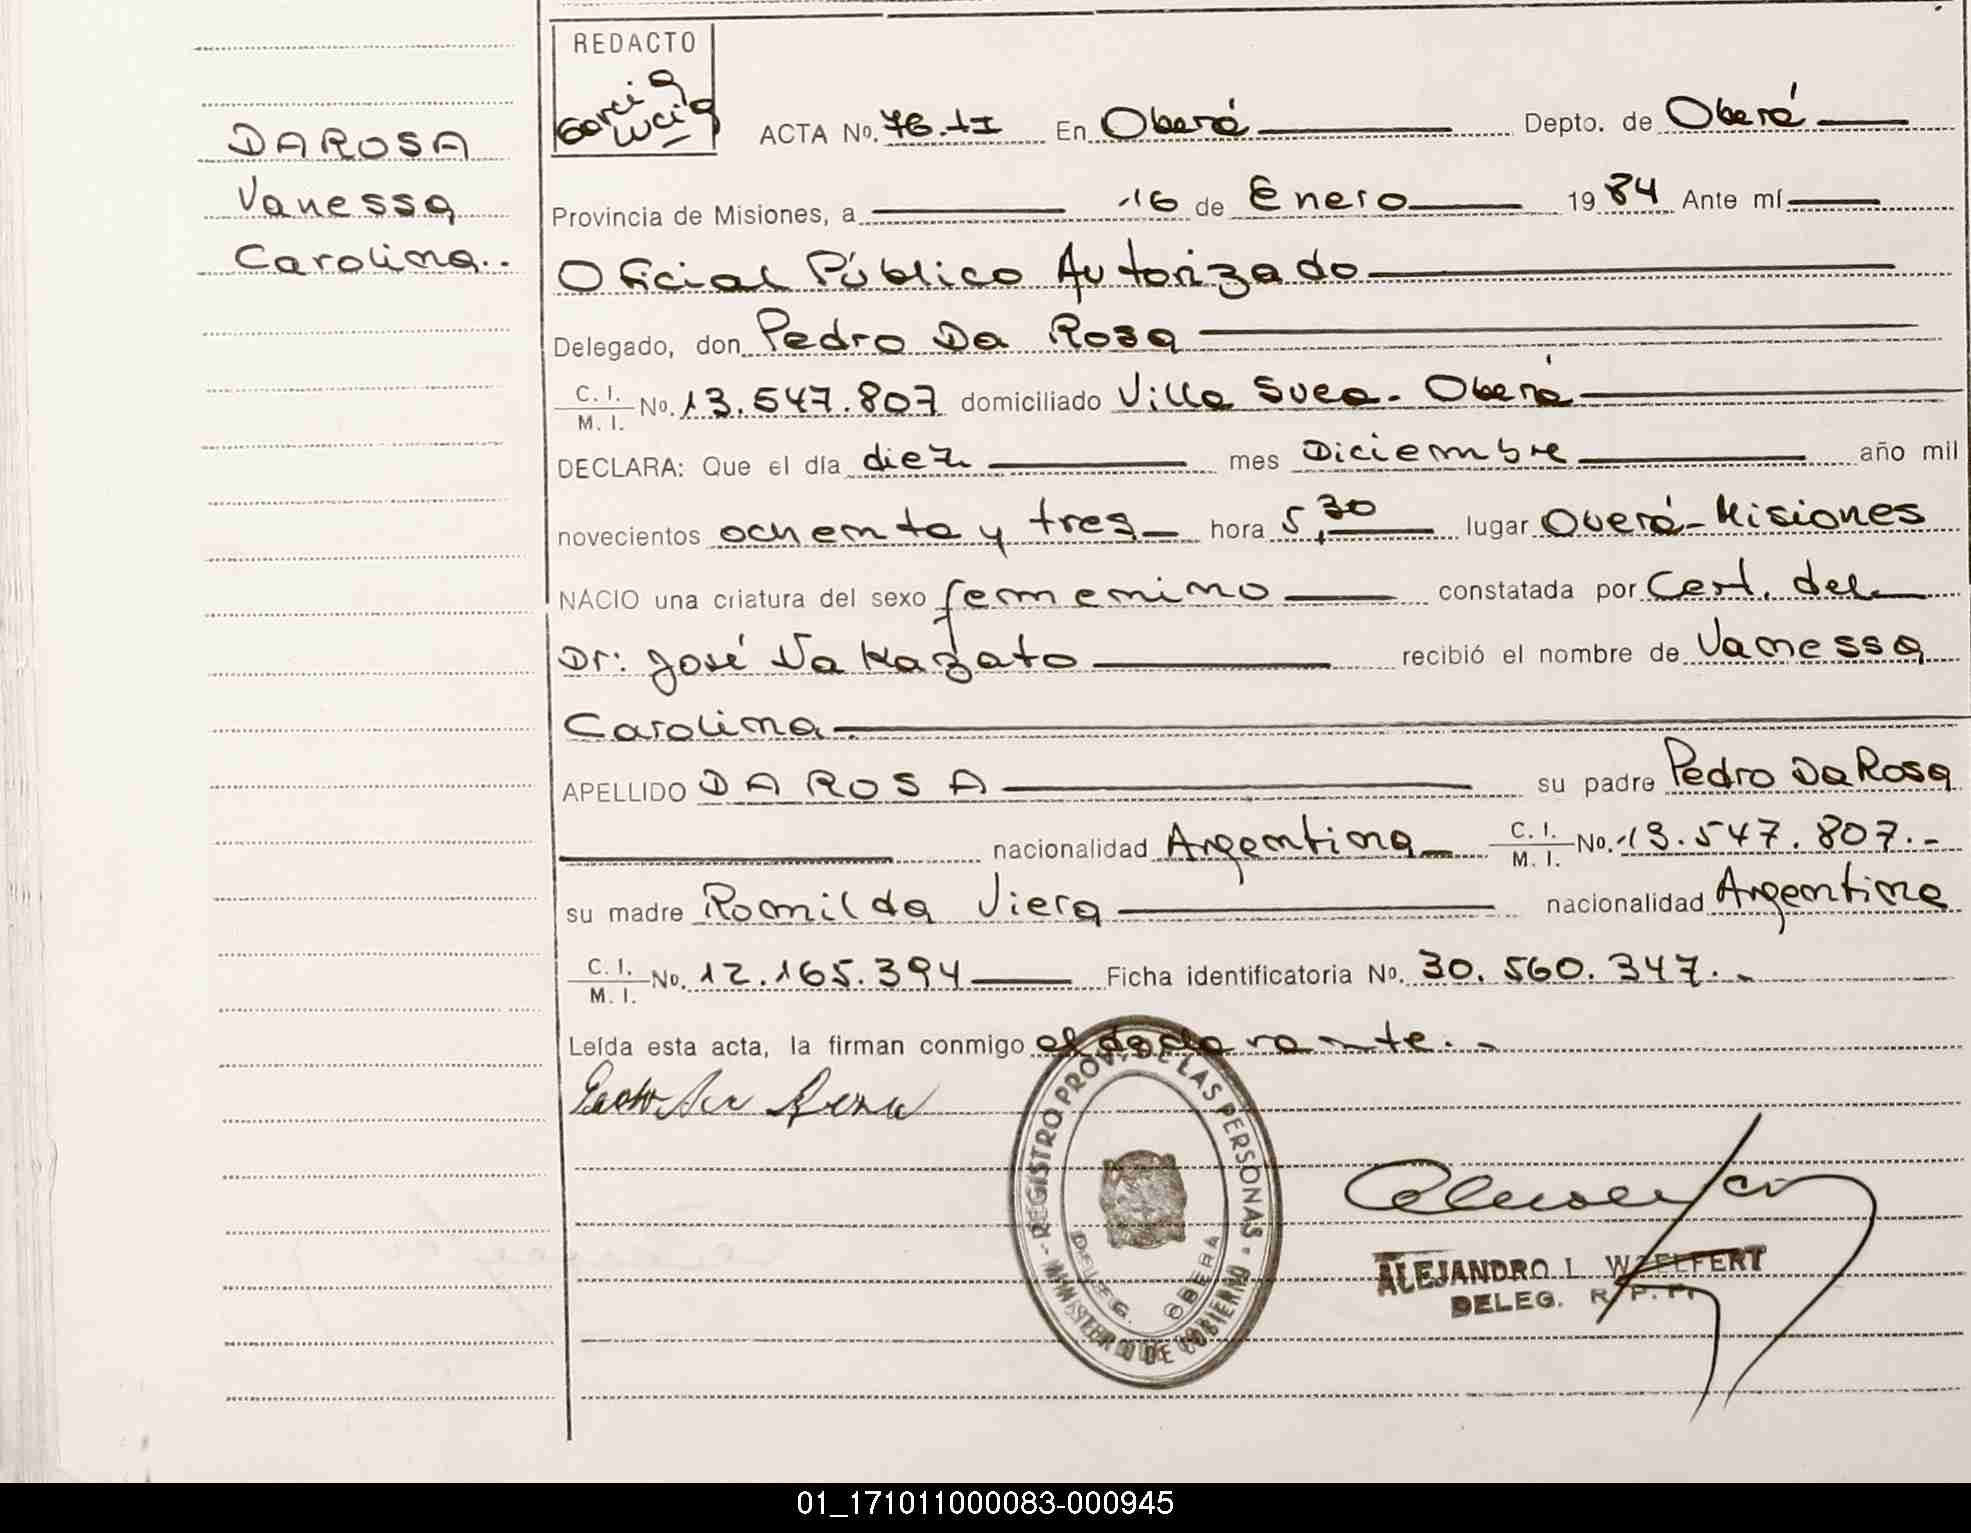 DA ROSA
Vanessa
Carolina..
REDACTO
Garcia
Lucia
ACTA No. 76.TI En Oberá Depto. de Oberá
Provincia de Misiones, a 16 de Enero 1984 Ante mí
Oficial Público Autorizado
Delegado, don Pedro Da Rosa
C. I.
M. I. No. 13.547.807 domiciliado Villa Svea. Oberá
DECLARA: Que el día diez mes Diciembre año mil
novecientos ochenta y tres hora 5,30 lugar Overá-Misiones
NACIO una criatura del sexo femenino constatada por Cert. del
Dr: José Nakazato recibió el nombre de Vanessa
Carolina.
APELLIDO DA ROSA su padre Pedro Da Rosa
nacionalidad Argentina C. I.
M. I. No. 13.547.807.-
su madre Romilda Viera nacionalidad Argentina
C. I.
M. I. No. 12.165.394 Ficha identificatoria No. 30.560.347.-
Leída esta acta, la firman conmigo el declarante.-
REGISTRO PROV. DE LAS PERSONAS
MINISTERIO DE GOBIERNO
DELEG. OBERA
ALEJANDRO L. WOELFERT
DELEG. R. P. P.
01_171011000083-000945